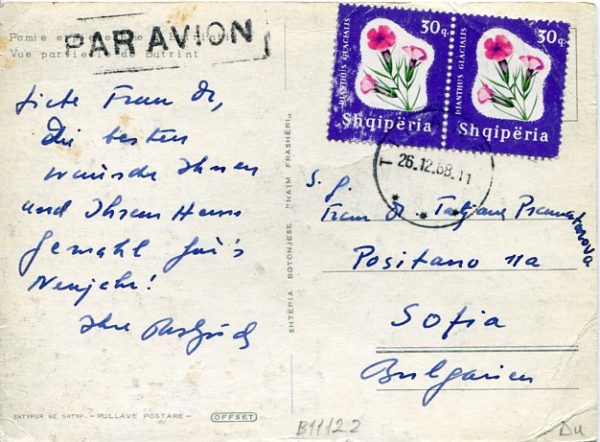 PAR AVION
Vue partielle de Butrint
30q
DIANTHUS GLACIALIS
Shqipëria
30q
DIANTHUS GLACIALIS
Shqipëria
26.12.68.11
Liebe Frau Dr,
die besten
wünsche Ihnen
und Ihrem Herrn
Gemahl für's
Neujahr!
Ihre
Frau Dr. Tatjana
Positano 11a
Sofia
Bulgarien
SHTËPIA BOTONJESE "NAIM FRASHËRI"
SHTYPUR NE SHTYP. - PULLAVE POSTARE -
OFFSET
B11122